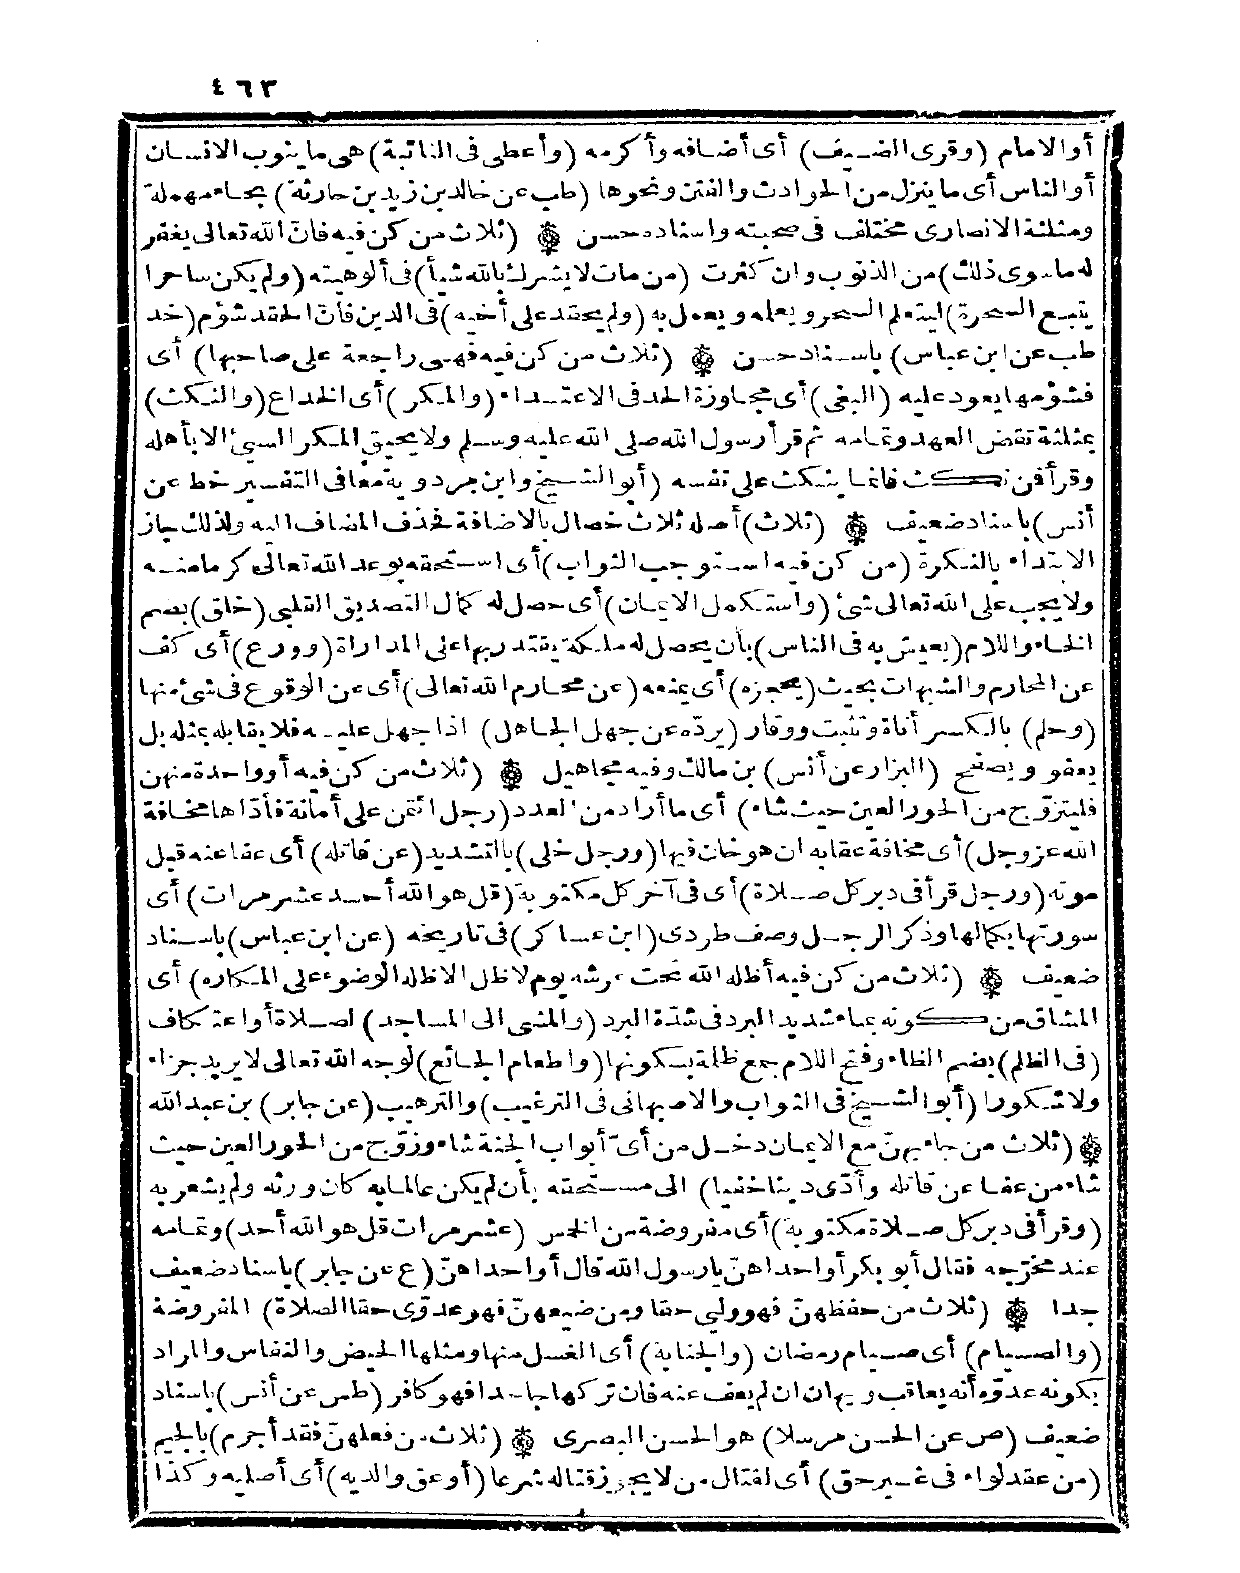 ٤٦٣
أو الامام (وقرى الضيف) أى أضافه وأكرمه (وأعطى فى النائبة) هى ما ينوب الانسان
أو الناس أى ما ينزل من الحوادث والفتن ونحوها (طب عن خالد بن زيد بن حارثة) بحاء مهملة
ومثلثة الانصارى مختلف فى صحبته واسناده حسن ۞ (ثلاث من كن فيه فانّ الله تعالى يغفر
له ما سوى ذلك) من الذنوب وان كثرت (من مات لا يشرك بالله شيأ) فى ألوهيته (ولم يكن ساحرا
يتبع السحرة) ليتعلم السحر ويعلمه ويعمل به (ولم يحقد على أخيه) فى الدين فانّ الحقد شؤم (خد
طب عن ابن عباس) باسناد حسن ۞ (ثلاث من كن فيه فهى راجعة على صاحبها) أى
فشؤمها يعود عليه (البغى) أى مجاوزة الحد فى الاعتداء (والمكر) أى الخداع (والنكث)
بمثلثة نقض العهد وتمامه ثم قرأ رسول الله صلى الله عليه وسلم ولا يحيق المكر السيئ الا بأهله
وقرأ فمن نكث فانما ينكث على نفسه (أبو الشيخ وابن مردويه معا فى التفسير خط عن
أنس) باسناد ضعيف ۞ (ثلاث) أصله ثلاث خصال بالاضافة فحذف المضاف اليه ولذلك جاز
الابتداء بالنكرة (من كن فيه استوجب الثواب) أى استحقه بوعد الله تعالى كرما منه
ولا يجب على الله تعالى شئ (واستكمل الايمان) أى حصل له كمال التصديق القلبى (خلق) بضم
الخاء واللام (يعيش به فى الناس) بأن يحصل له ملكة يقتدر بها على المداراة (وورع) أى كف
عن المحارم والشبهات بحيث (يحجزه) أى يمنعه (عن محارم الله تعالى) أى عن الوقوع فى شئ منها
(وحلم) بالكسر أناة وتثبت ووقار (يردّه عن جهل الجاهل) اذا جهل عليه فلا يقابله بمثله بل
يعفو ويصفح (البزار عن أنس) بن مالك وفيه مجاهيل ۞ (ثلاث من كن فيه أو واحدة منهن
فليتزوّج من الحور العين حيث شاء) أى ما أراد من العدد (رجل ائتمن على أمانة فأدّاها مخافة
الله عز وجل) أى مخافة عقابه ان هو خان فيها (ورجل خلى) بالتشديد (عن قاتله) أى عفا عنه قبل
موته (ورجل قرأ فى دبر كل صلاة) أى فى آخر كل مكتوبة (قل هو الله أحد عشر مرات) أى
سورتها بكمالها وذكر الرجل وصف طردى (ابن عساكر) فى تاريخه (عن ابن عباس) باسناد
ضعيف ۞ (ثلاث من كن فيه أظله الله تحت عرشه يوم لا ظل الا ظله الوضوء على المكاره) أى
المشاق من كونه بماء شديد البرد فى شدّة البرد (والمشى الى المساجد) لصلاة أو اعتكاف
(فى الظلم) بضم الظاء وفتح اللام جمع ظلمة بسكونها (واطعام الجائع) لوجه الله تعالى لا يريد جزاء
ولا شكورا (أبو الشيخ فى الثواب والاصبهانى فى الترغيب) والترهيب (عن جابر) بن عبد الله
۞ (ثلاث من جاء بهنّ مع الايمان دخل من أىّ أبواب الجنة شاء وزوّج من الحور العين حيث
شاء من عفا عن قاتله وأدّى دينا خفيا) الى مستحقه بأن لم يكن عالما به كان ورثه ولم يشعر به
(وقرأ فى دبر كل صلاة مكتوبة) أى مفروضة من الخمس (عشر مرات قل هو الله أحد) وتمامه
عند مخرّجه فقال أبو بكر أو احداهنّ يا رسول الله قال أو احداهنّ (ع عن جابر) باسناد ضعيف
جدا ۞ (ثلاث من حفظهنّ فهو ولي حقا ومن ضيعهنّ فهو عدوّى حقا الصلاة) المفروضة
(والصيام) أى صيام رمضان (والجنابة) أى الغسل منها ومثلها الحيض والنفاس والمراد
بكونه عدوّه أنه يعاقب ويهان ان لم يعف عنه فان تركها جاحدا فهو كافر (طس عن أنس) باسناد
ضعيف (ص عن الحسن مرسلا) هو الحسن البصرى ۞ (ثلاث من فعلهنّ فقد أجرم) بالجيم
(من عقد لواء فى غير حق) أى لقتال من لا يجوز قتاله شرعا (أو عق والديه) أى أصليه وكذا